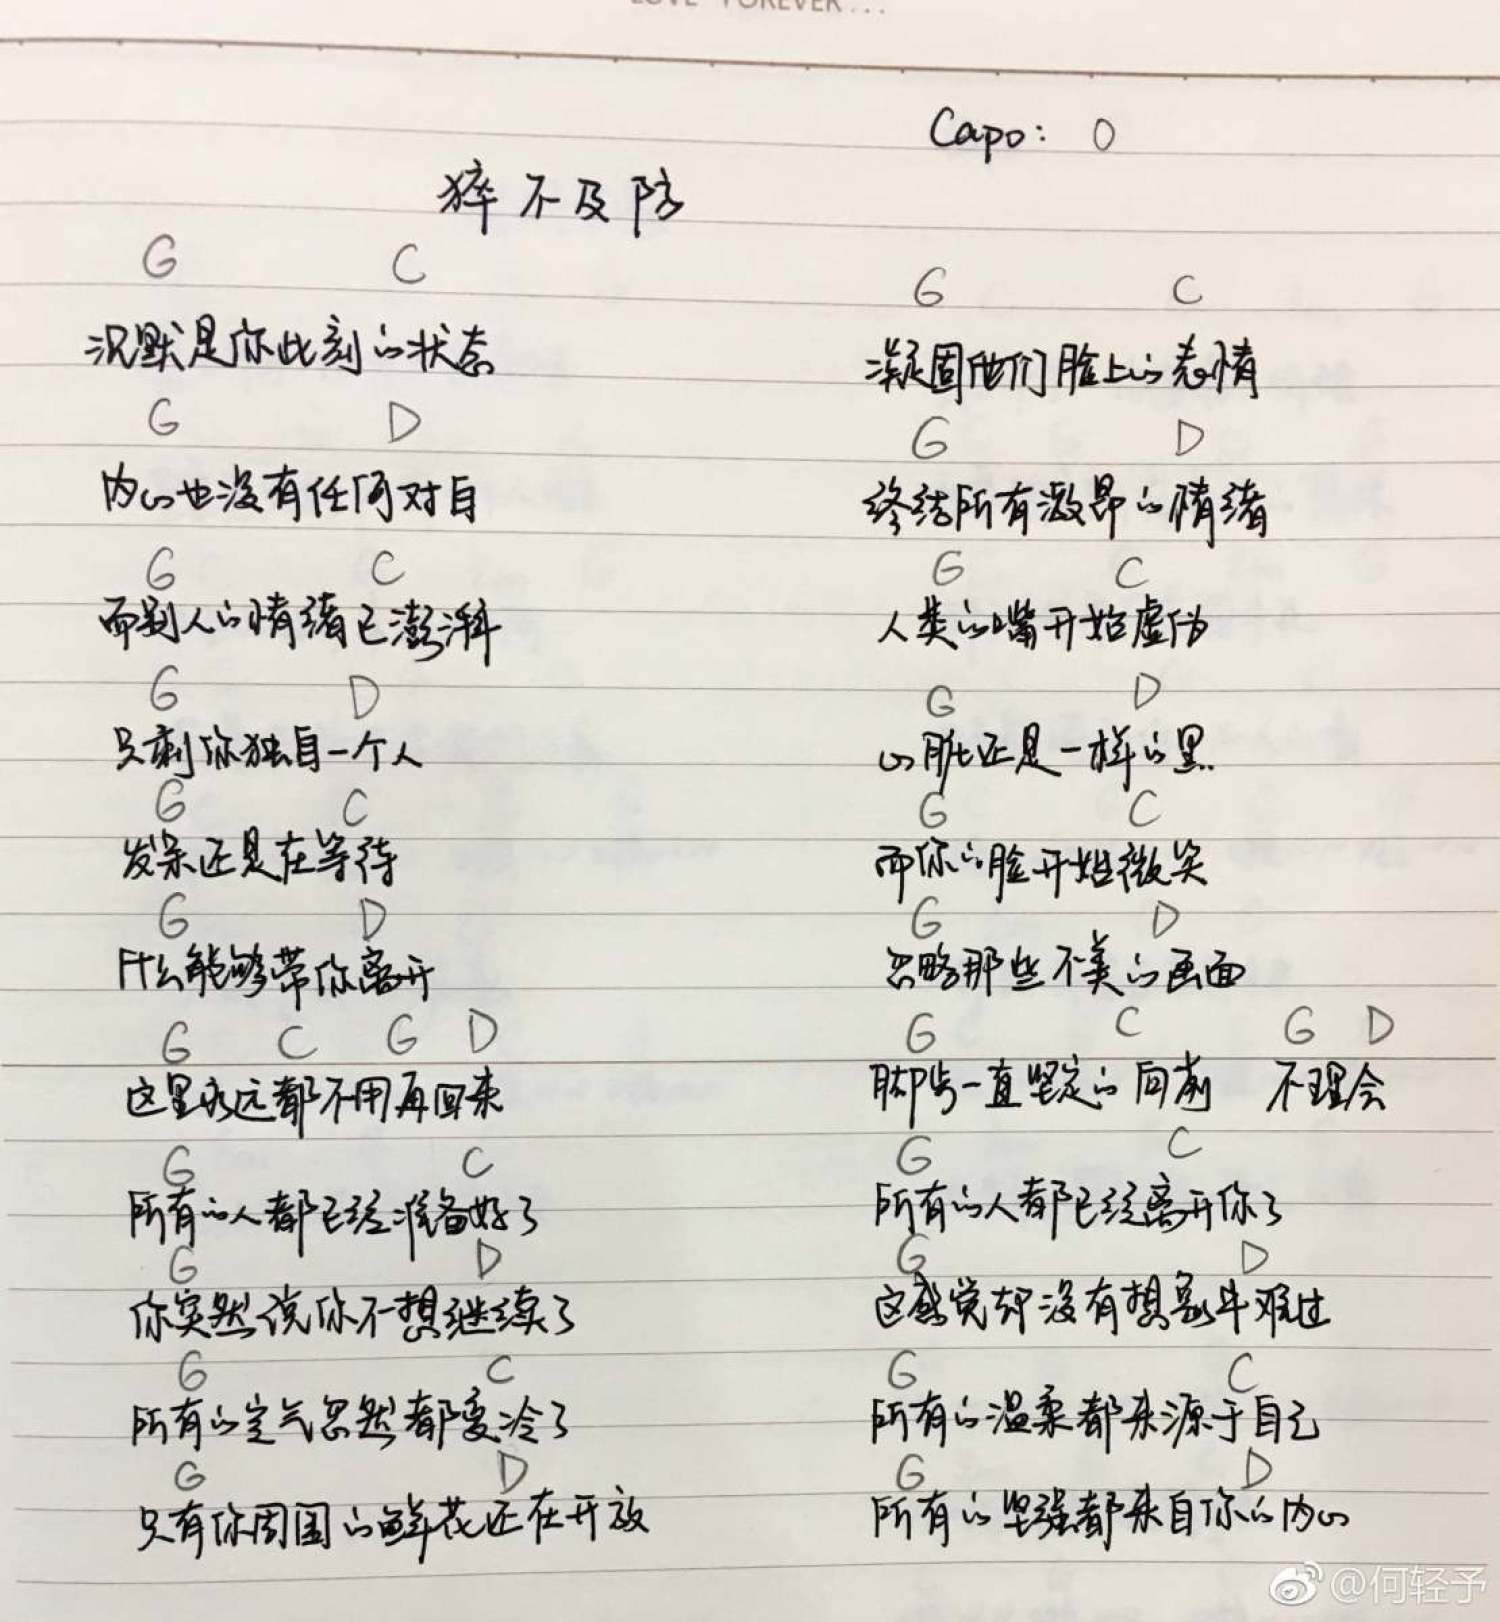 LOVE FOREVER...
Capo: 0
猝不及防
G C
沉默是你此刻的状态
G D
内心也没有任何对白
G C
而别人的情绪已澎湃
G D
只剩你独自一个人
G C
发呆还是在等待
G D
什么能够带你离开
G C G D
这里永远都不用再回来
G C
所有的人都已经准备好了
G D
你突然说你不想继续了
G C
所有的空气忽然都变冷了
G D
只有你周围的鲜花还在开放
G C
凝固他们脸上的表情
G D
终结所有激昂的情绪
G C
人类的嘴开始虚伪
G D
心脏还是一样的黑.
G C
而你的脸开始微笑
G D
忽略那些不美的画面
G C G D
脚步一直坚定的向前 不理会
G C
所有的人都已经离开你了
G D
这感觉却没有想象中难过
G C
所有的温柔都来源于自己
G D
所有的坚强都来自你的内心
@何轻予